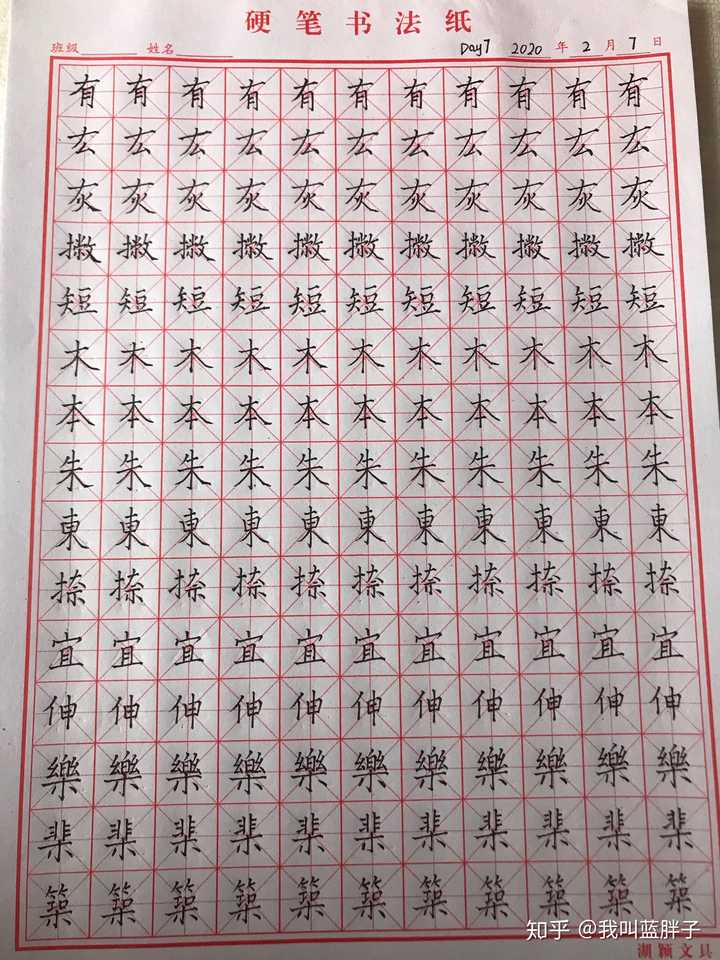 硬笔书法纸
班级 姓名 Day7 2020 年 2 月 7 日
有有有有有有有有有有有
厷厷厷厷厷厷厷厷厷厷厷
灰灰灰灰灰灰灰灰灰灰灰
撇撇撇撇撇撇撇撇撇撇撇
短短短短短短短短短短短
木木木木木木木木木木木
本本本本本本本本本本本
朱朱朱朱朱朱朱朱朱朱朱
東東東東東東東東東東東
捺捺捺捺捺捺捺捺捺捺捺
宜宜宜宜宜宜宜宜宜宜宜
伸伸伸伸伸伸伸伸伸伸伸
樂樂樂樂樂樂樂樂樂樂樂
棐棐棐棐棐棐棐棐棐棐棐
築築築築築築築築築築築
知乎 @我叫蓝胖子
湖颖文具